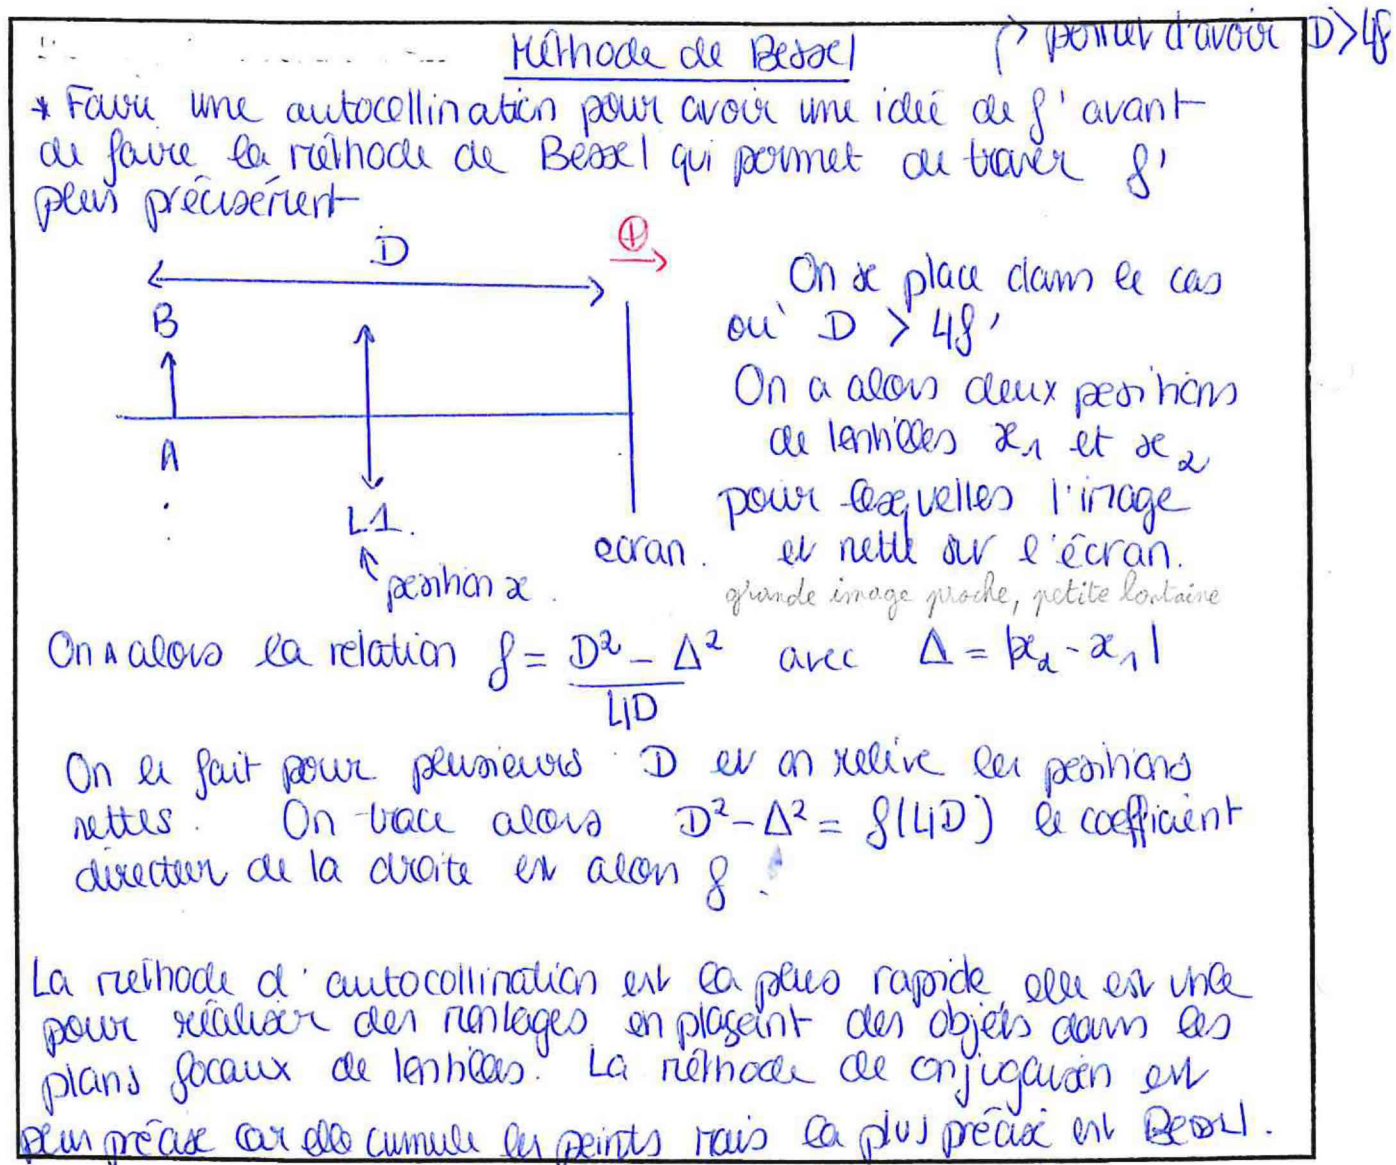 Méthode de Bessel
→ permet d'avoir D>4f
* Faire une autocollination pour avoir une idée de f' avant
de faire la méthode de Bessel qui permet de trouver f'
plus précisément
D
⊕
B
A
L1.
position x.
ecran.
On se place dans le cas
où D > 4f'
On a alors deux positions
de lentilles x₁ et x₂
pour lesquelles l'image
est nette sur l'écran.
grande image proche, petite lointaine
On a alors la relation f = (D² - Δ²)/4D avec Δ = |x₂ - x₁|
On le fait pour plusieurs D et on relève les positions
nettes. On trace alors D² - Δ² = f(4D) le coefficient
directeur de la droite est alors f.
La méthode d'autocollination est la plus rapide elle est utile
pour réaliser des montages en plaçant des objets dans les
plans focaux de lentilles. La méthode de conjugaison est
plus précise car elle cumule les points mais la plus précise est Bessel.